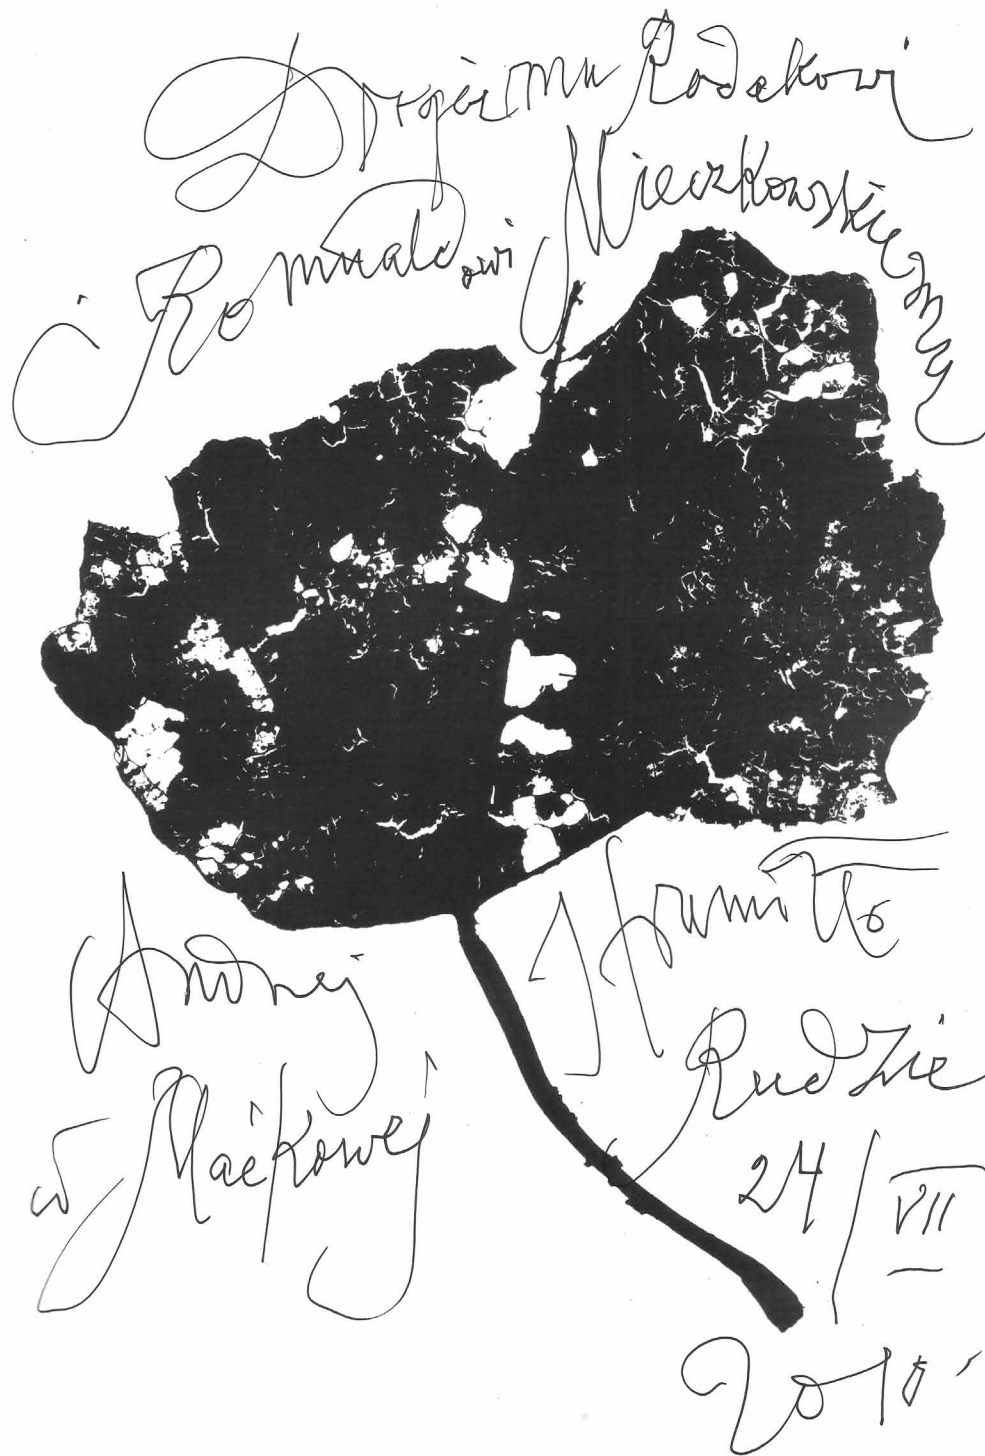 Drogiemu Rodakowi
Romualdowi Mieczkowskiemu
Andrzej
w Maćkowej
Rudzie
24/VII
2010